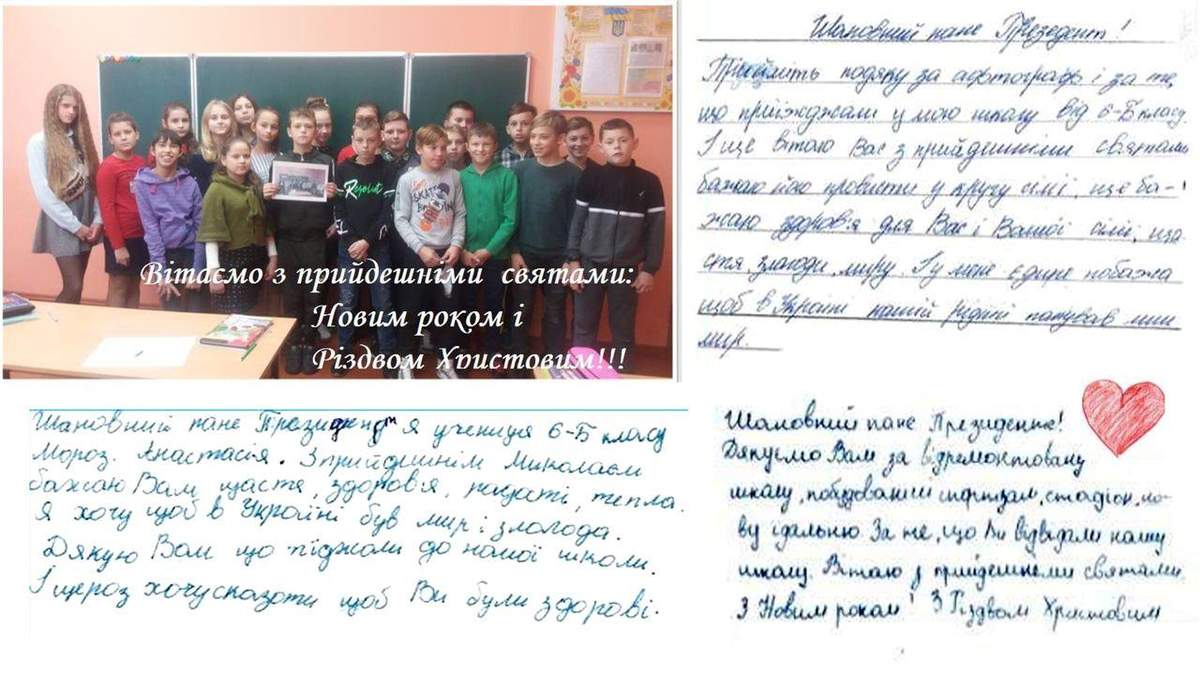 Вітаємо з прийдешніми святами:
Новим роком і
Різдвом Христовим!!!
Шановний пане Презедент!
Прийміть подяку за афтограф і за те
що приїжджали у мою школу від 6-Б класу.
І ще вітаю Вас з прийдешніми святами
бажаю його провести у кругу сімї, ще ба-
жаю здоров'я для Вас і Вашої сімї, ща-
стя, злагоди, миру. І у мене єдине побажа
щоб в Україні нашій рідній панував
мир.
Шановний пане Президендт я учениця 6-Б класу
Мороз. Анастасія. З прийдешнім Миколаєм
бажаю Вам щастя, здоров'я, радості, тепла.
Я хочу щоб в Україні був мир і злагода.
Дякую Вам що піджали до нашої школи.
І щераз хочу сказати щоб Ви були здорові.
Шановний пане Президенте!
Дякуємо Вам за відремонтовану
школу, побудований спортзал, стадіон, но-
ву їдальню. За те, що Ви відвідали нашу
школу. Вітаю з прийдешнеми святами.
З Новим роком! З Різдвом Христовим